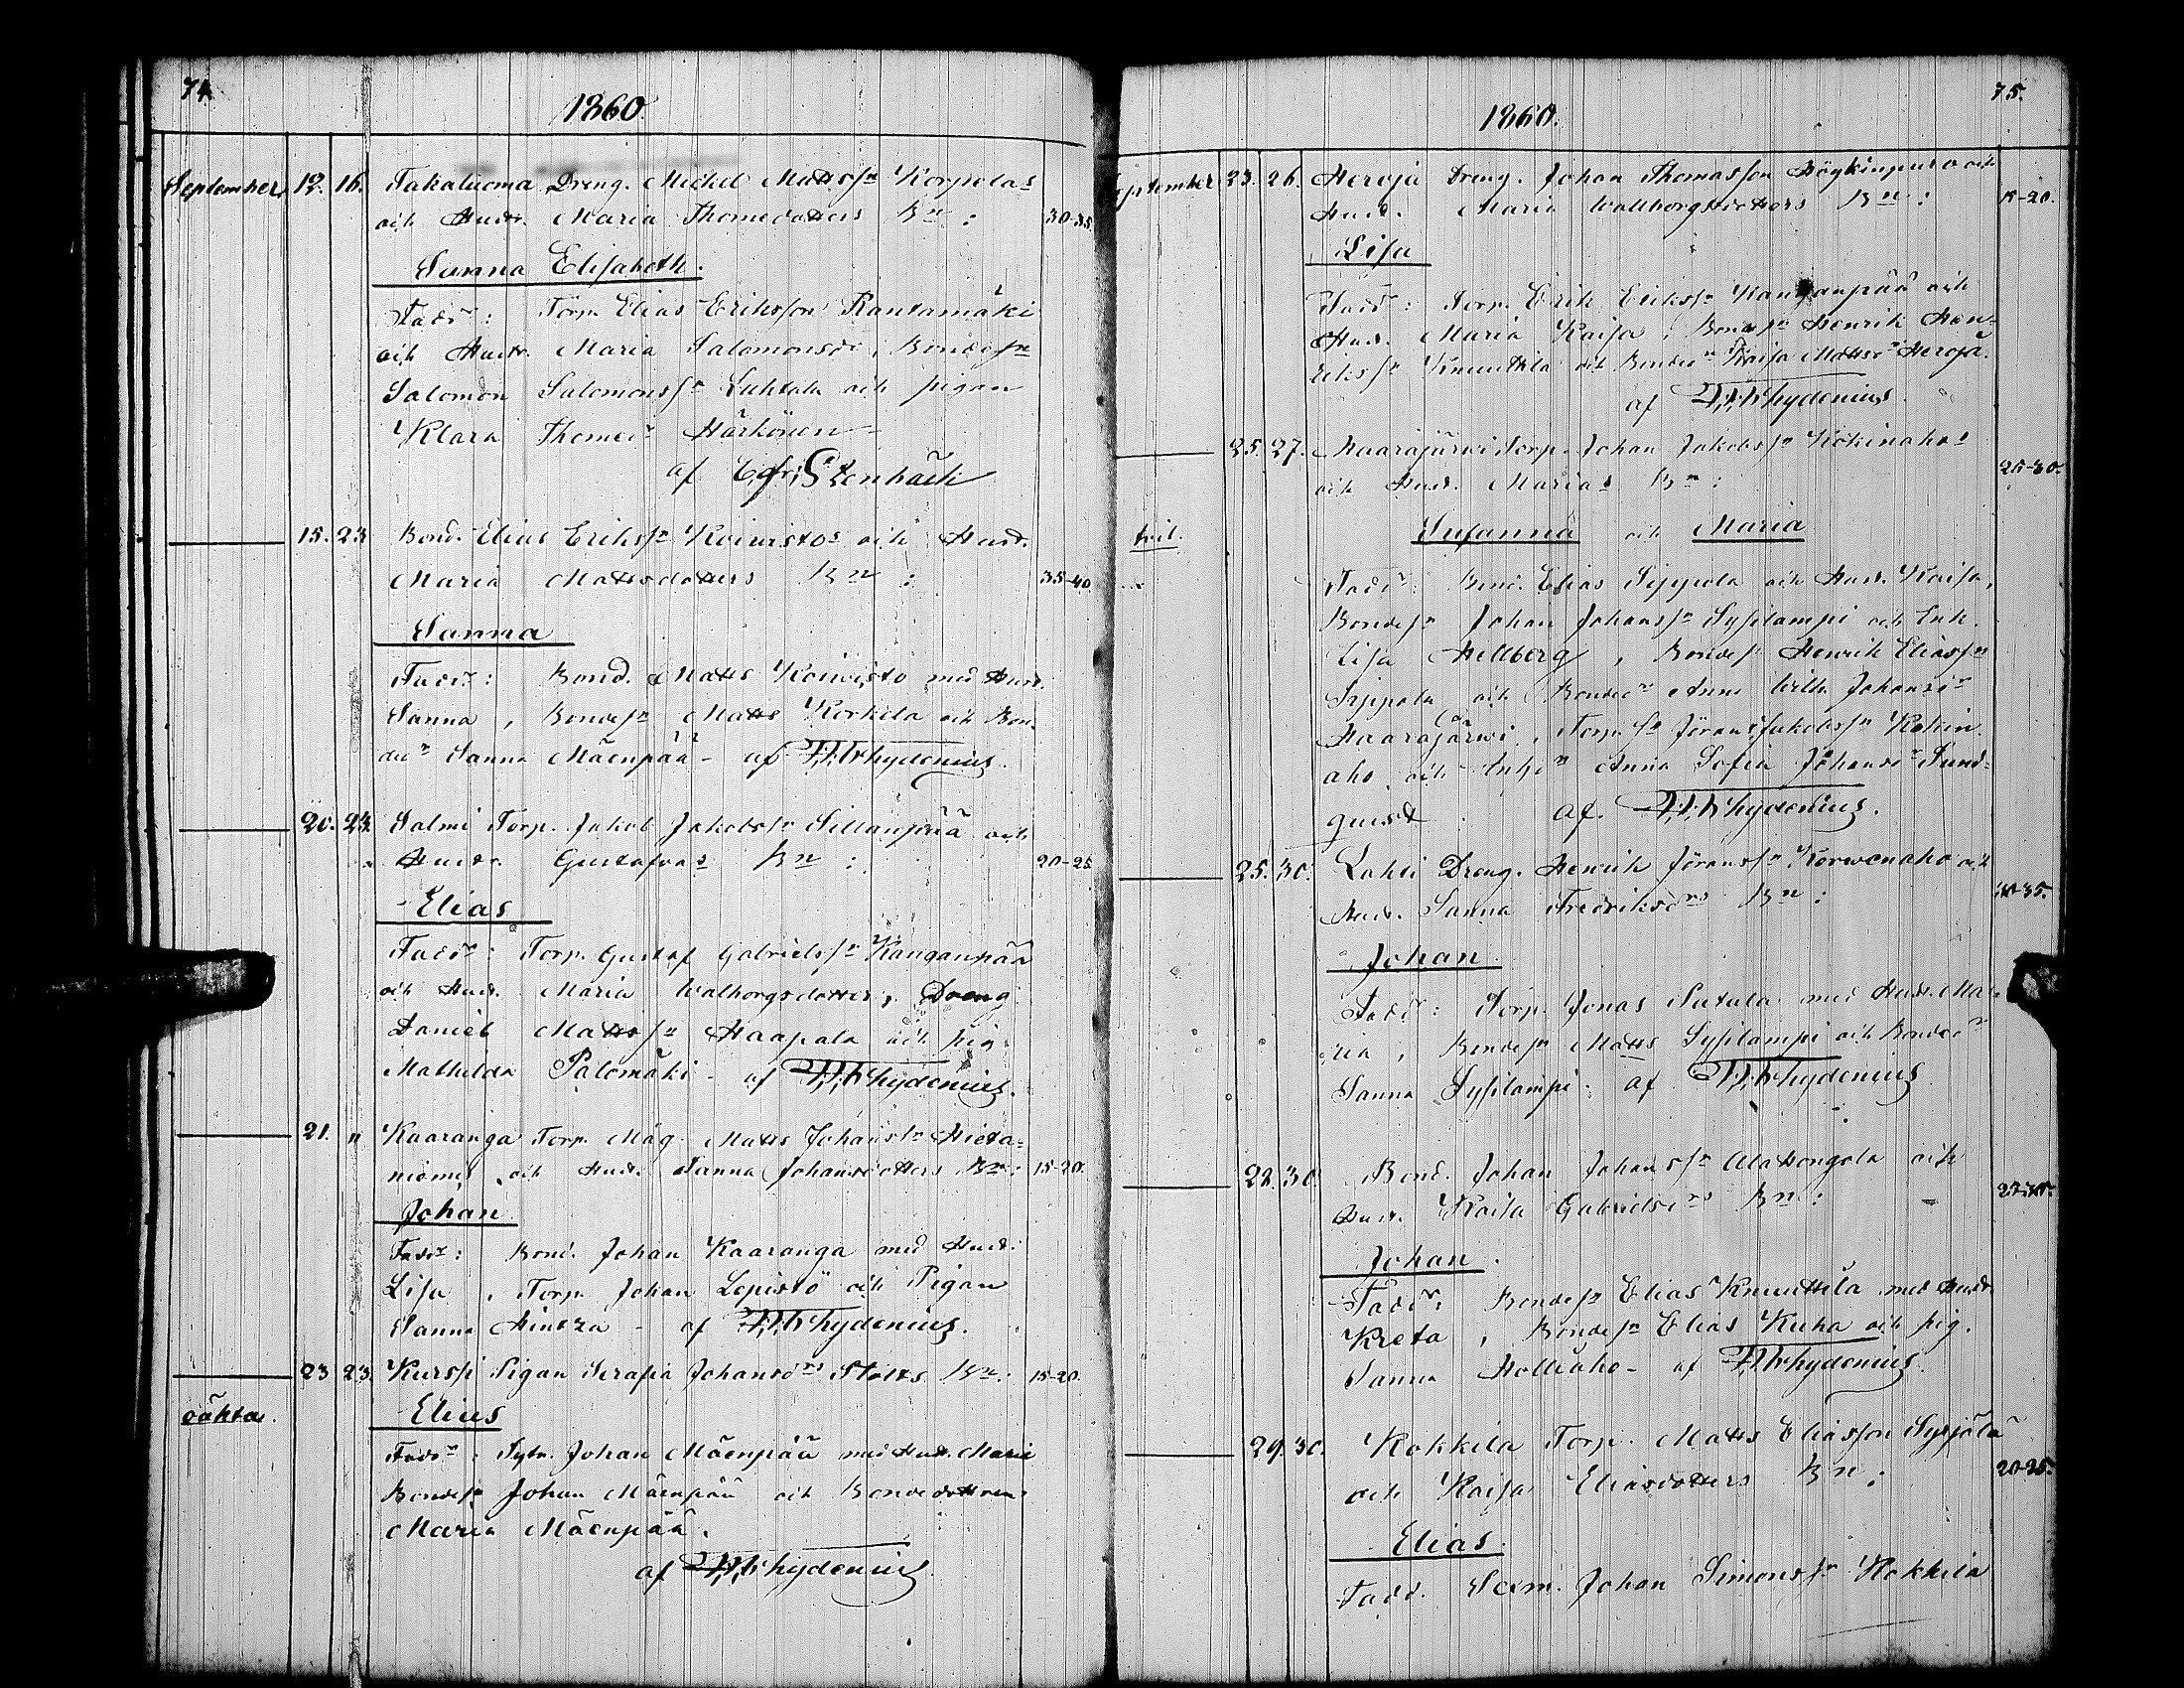 74.
1860.
September 12. 16. Takaluoma Dreng. Michel Mattss​n Korpelas
och Hustr. Maria Thomedotters Bn: 30-35.
Sanna Elisabeth.
Faddr: Torp. Elias Eriksson Rantamäki
och Hustr. Maria Salomonsdr, Bondesn
Salomon Salomonssn Luhtala och pigan
Klara Thomedr Härkönen
af C. Fr. Stenbäck
15. 23 Bond. Elias Erikssn Koiwistos och Hust.
Maria Mattsdotters Bn: 35-40.
Sanna
Faddr: Bond. Matts Koiwisto med Hust.
Sanna, Bondesn Matts Korkela och Bon-
dedr Sanna Mäenpää - af Thydenius.
20. 23. Salmi Torp. Jakob Jakobssn Sillanpää och
Hustr. Gustafvas Bn: 20-25.
Elias
Faddr: Torp. Gustaf Gabrielssn Kanganpää
och Hust. Maria Walborgsdotter, Dreng
Daniel Mattssn Haapala och pig.
Mathilda Palomäki - af Thydenius.
21. " Kaaranga Torp. Måg. Matts Johanssn Hieta-
niemis och Hust. Sanna Johansdotters Bn: 15-20.
Johan
Faddr: Bond. Johan Kaaranga med Hust.
Lisa, Torp. Johan Lepistö och Pigan
Sanna Hintza - af Thydenius.
23 23. Kurssi Pigan Serafia Johansdrs Stolts Bn: 15-20.
oäkta. Elias
Faddr: Sytn. Johan Mäenpää med Hust. Maria
Bondesn Johan Mäenpää och Bondedottren
Maria Mäenpää.
af Thydenius.
75.
1860.
September 23. 26. Heroja Dreng. Johan Thomasson Höykinpuro och
Hust. Maria Walborgsdotters Bn: 15-20.
Lisa
Faddr: Torp. Erik Erikssn Kanganpää och
Hust. Maria Kaisa, Bondesn Henrik Hen-
rikssn Knuuttila och Bondedr Kaisa Mattsdr Heroja.
af Thydenius.
25. 27. Haarajärwi Torp. Johan Jakobssn Kokinahos
och Hust. Marias Bn: 25-30.
tvil. Susanna och Maria
Faddr: Bond. Elias Sippola och Hust. Kaisa,
Bondesn Johan Johanssn Sysilampi och Enk.
Lisa Hellberg, Bondesn Henrik Eliassn
Sippola och Bondedr Anna Wilh. Johansdr
Haarajärwi, Torp. Sn Jöran Jakobssn Kokin-
aho och Inhsdr Anna Sofia Johansdr Sund-
quist af Thydenius.
25. 30. Lahti Dreng. Henrik Jöranssn Korwenaho och
Hust. Sanna Fredriksdrs Bn: 30-35.
Johan.
Faddr: Torp. Jonas Sutala med Hust. Ma-
ria, Bondesn Matts Sysilampi och Bondedr
Sanna Sysilampi. af Thydenius
22. 30 Bond. Johan Johanssn Alatongola och
Hust. Kaisa Gabrielsdrs Bn:
Johan.
Faddr: Bondesn Elias Knuuttila med Hust.
Kreta, Bondesn Elias Kuha och pig.
Sanna Hollinaho - af Thydenius
29. 30. Kokkila Torp. Matts Eliasson Syrjälä
och Kaisa Eliasdotters Bn: 20-25.
Elias.
Fadd. Sexm. Johan Simonssn Kokkila